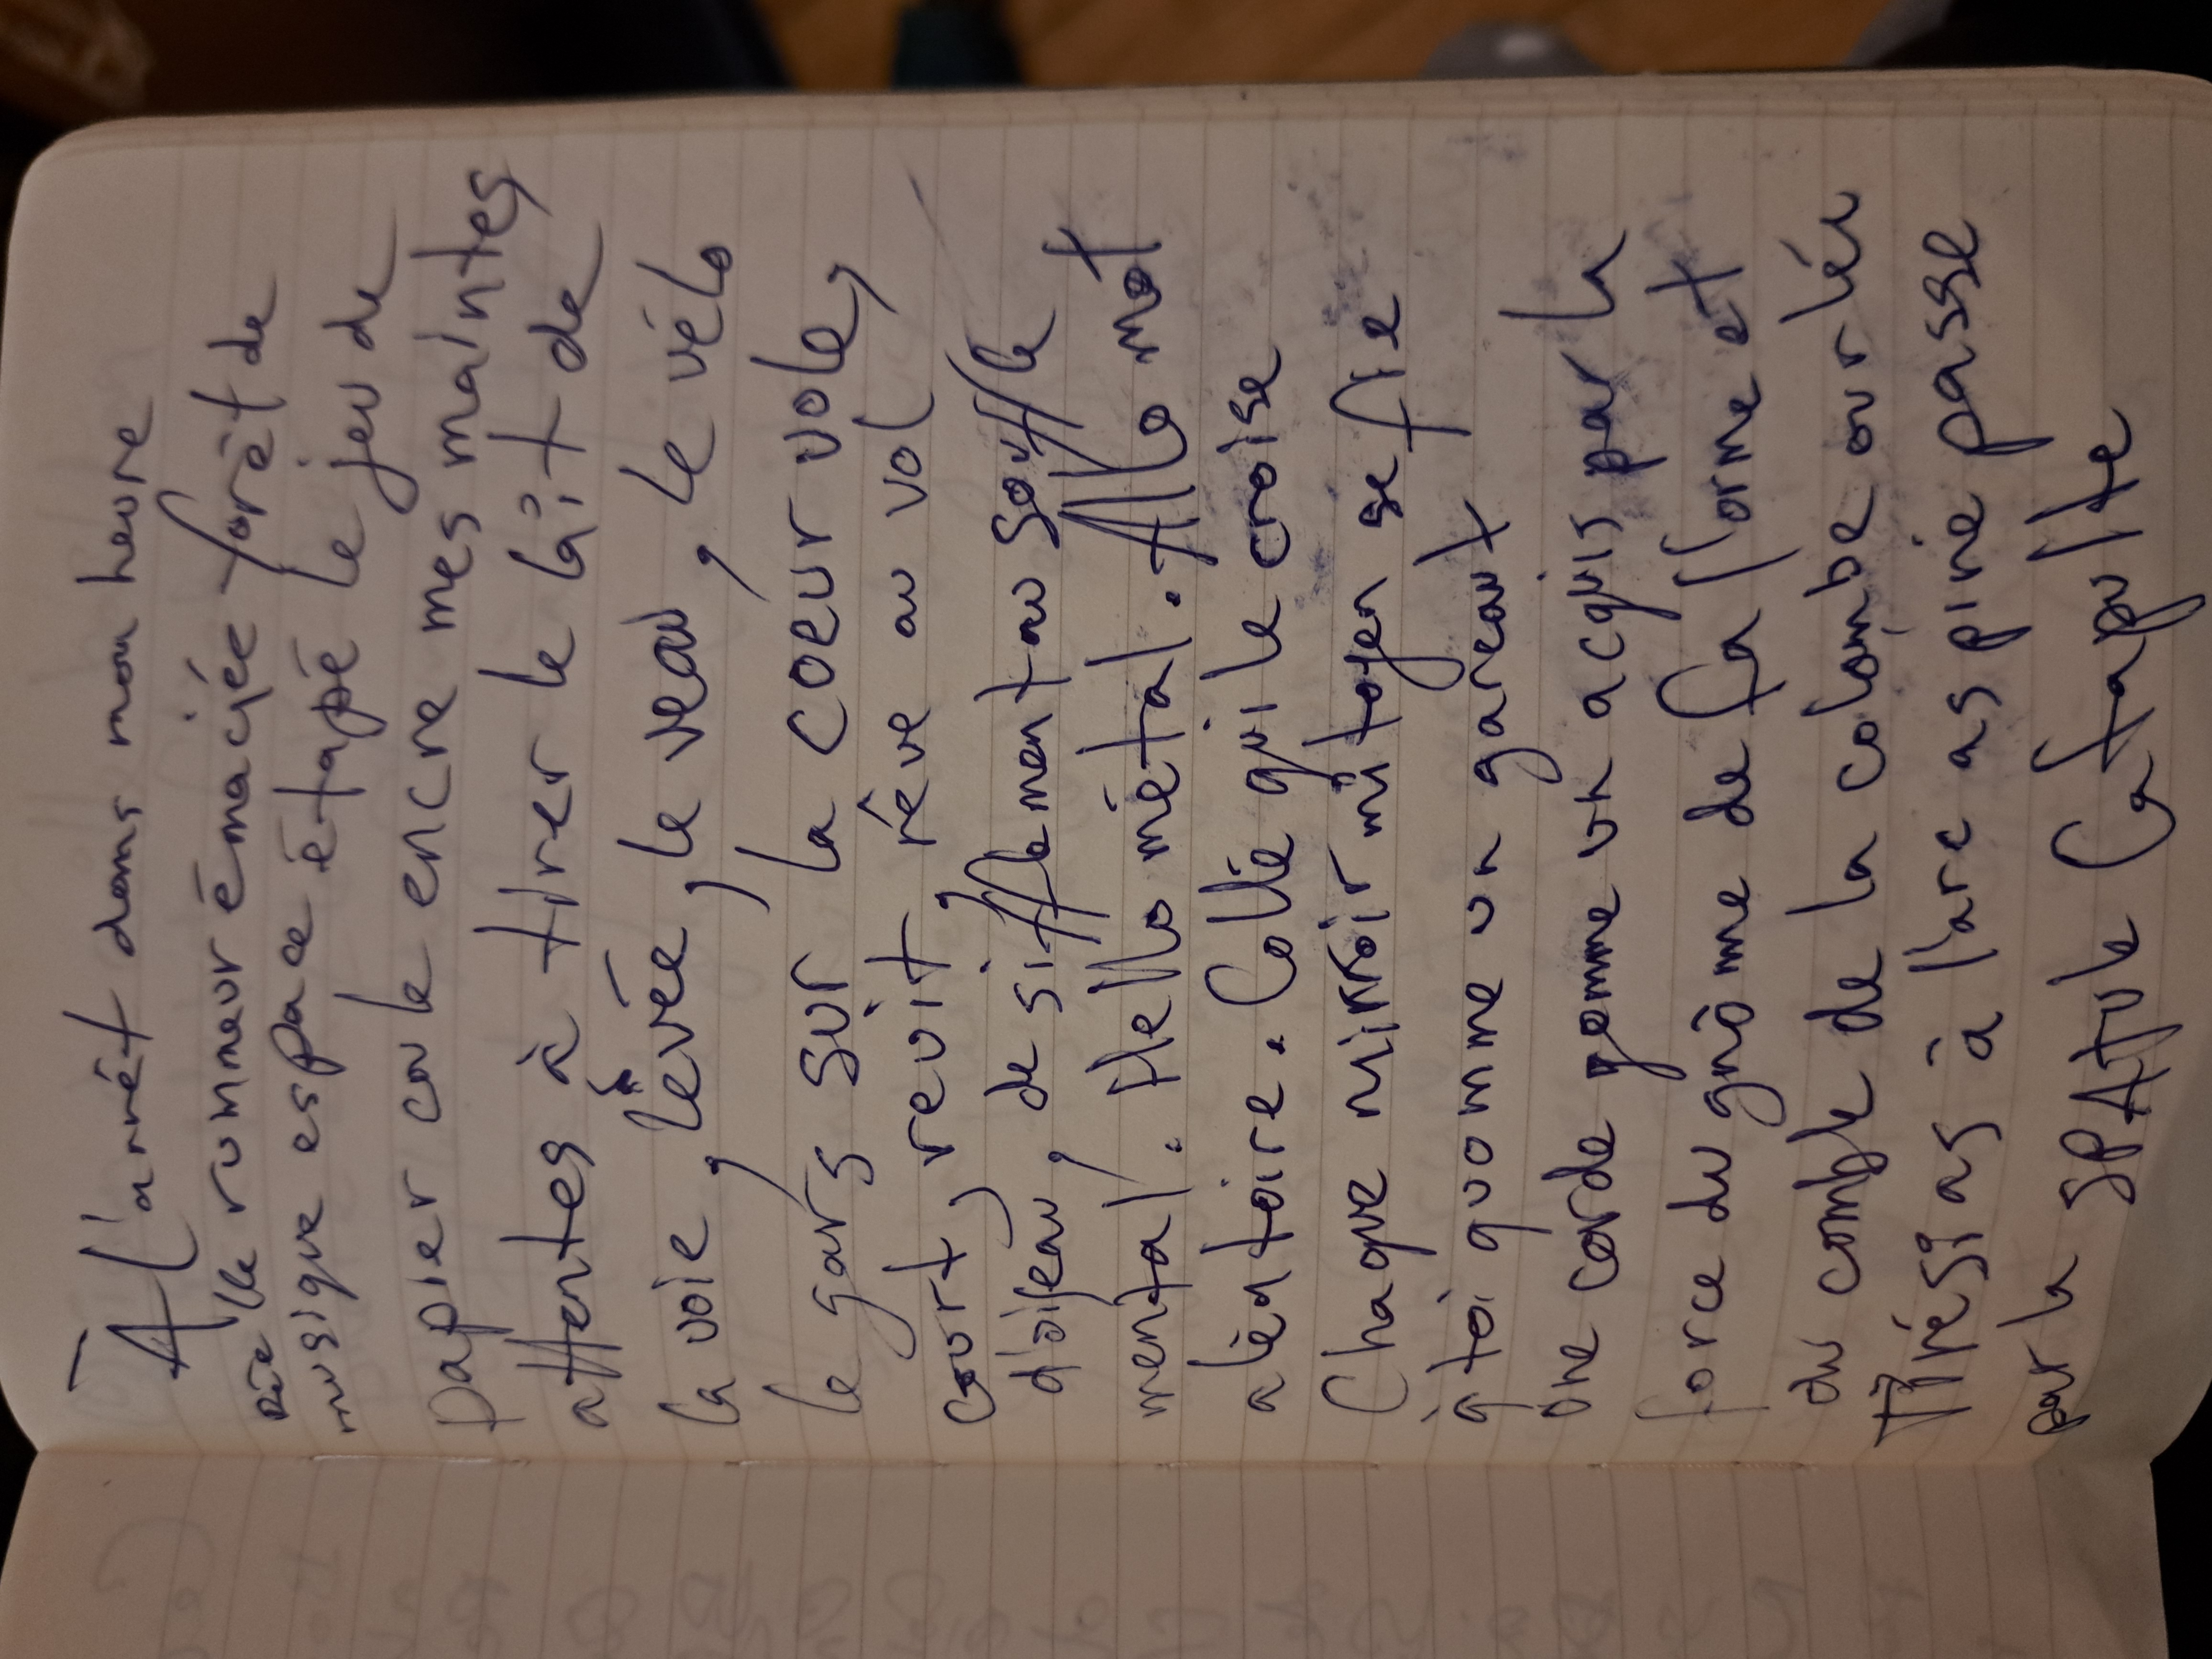 À l'arrêt dans mon heure
réelle rumeur émaciée forêt de
musique espace étapé le jeu de
papier coule encre mes maintes
attentes à tirer le lait de
la voie, levée, le veau, le vélo
le gars sur la coeur vole,
court, revoit, rêve au vol
d'oiseau, de sifflement au souffle
mental. Hello métal. Allo mot
aléatoire. Colle qui le croise
Chaque mirroir mitoyen se fie
à toi quomme un gareaut
une corde gemme un acquis par la
force du gnôme de fa forme et
du comble de la colombe ourlée
Tirési as à lare aspire passe
par la SPATule Catapulte